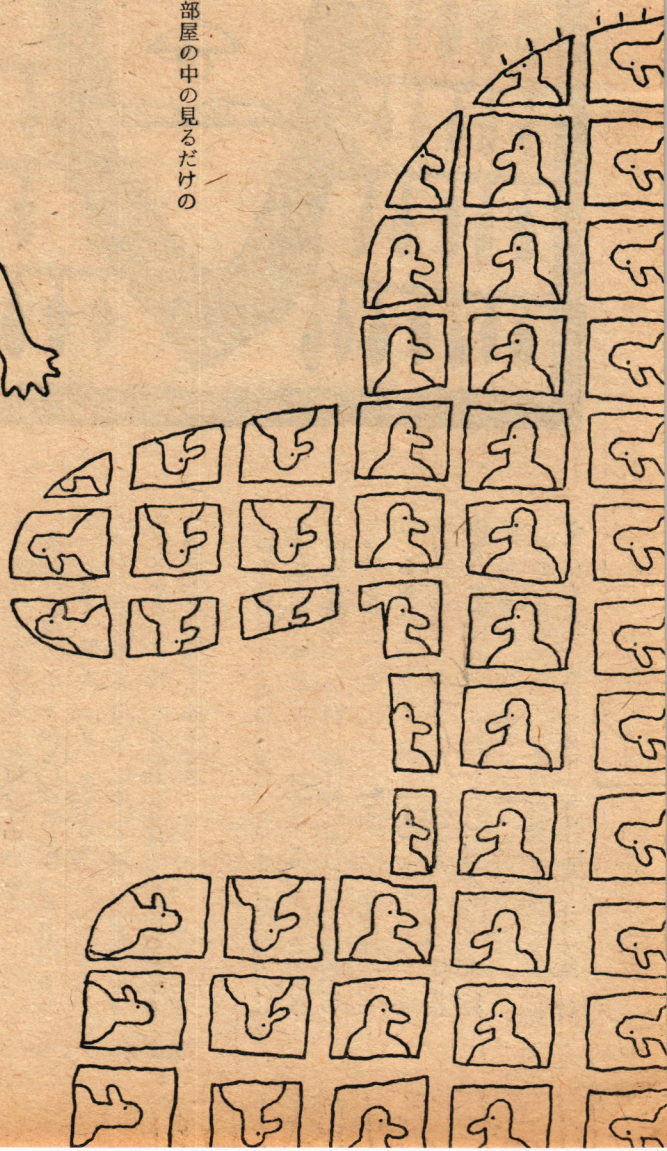 部屋の中の見るだけの